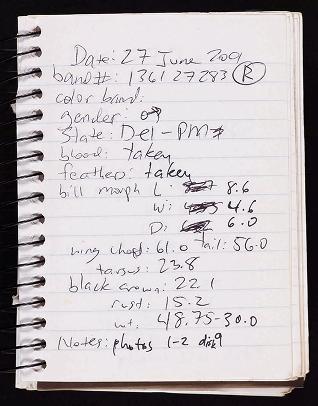 Date: 27 June 2001
band #: 1361 27283 R
color band:
gender: ♂
State: Del-PM
blood: taken
feather: taken
bill morph L: 8.6
W: 4.6
D: 6.0
wing chord: 61.0 tail: 56.0
tarsus: 23.8
black crown: 22.1
rust: 15.2
wt. 48.75-30.0
Notes: photos 1-2 disk 9